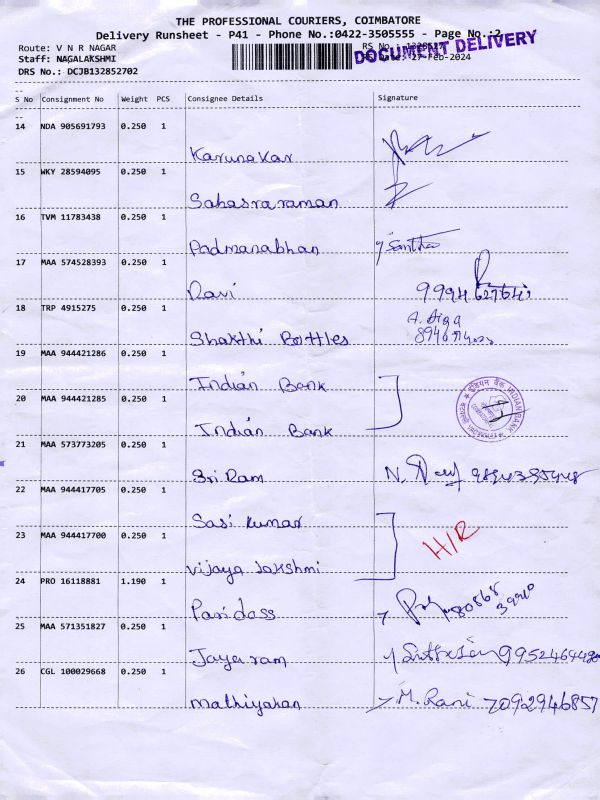 THE PROFESSIONAL COURIERS, COIMBATORE
Delivery Runsheet - P41 - Phone No.:0422-3505555 - Page No.:2
DOCUMENT DELIVERY
Route: V N R NAGAR
Staff: NAGALAKSHMI
27-Feb-2024
DRS No.: DCJB132852702
S No Consignment No Weight PCS Consignee Details Signature
14 NDA 905691793 0.250 1
Karunakar
15 WKY 28594095 0.250 1
Sahasraraman
16 TVM 11783438 0.250 1
Padmanabhan
17 MAA 574528393 0.250 1
Ravi
18 TRP 4915275 0.250 1
Shakthi Bottles
19 MAA 944421286 0.250 1
Indian Bank
20 MAA 944421285 0.250 1
Indian Bank
21 MAA 573773205 0.250 1
Sri Ram
22 MAA 944417705 0.250 1
Sasi Kumar
23 MAA 944417700 0.250 1
H/R
Vijaya Lakshmi
24 PRO 16118881 1.190 1
Paridass
25 MAA 571351827 0.250 1
Jayaram
26 CGL 100029668 0.250 1
Mathiyahan M. Rani 7092946857